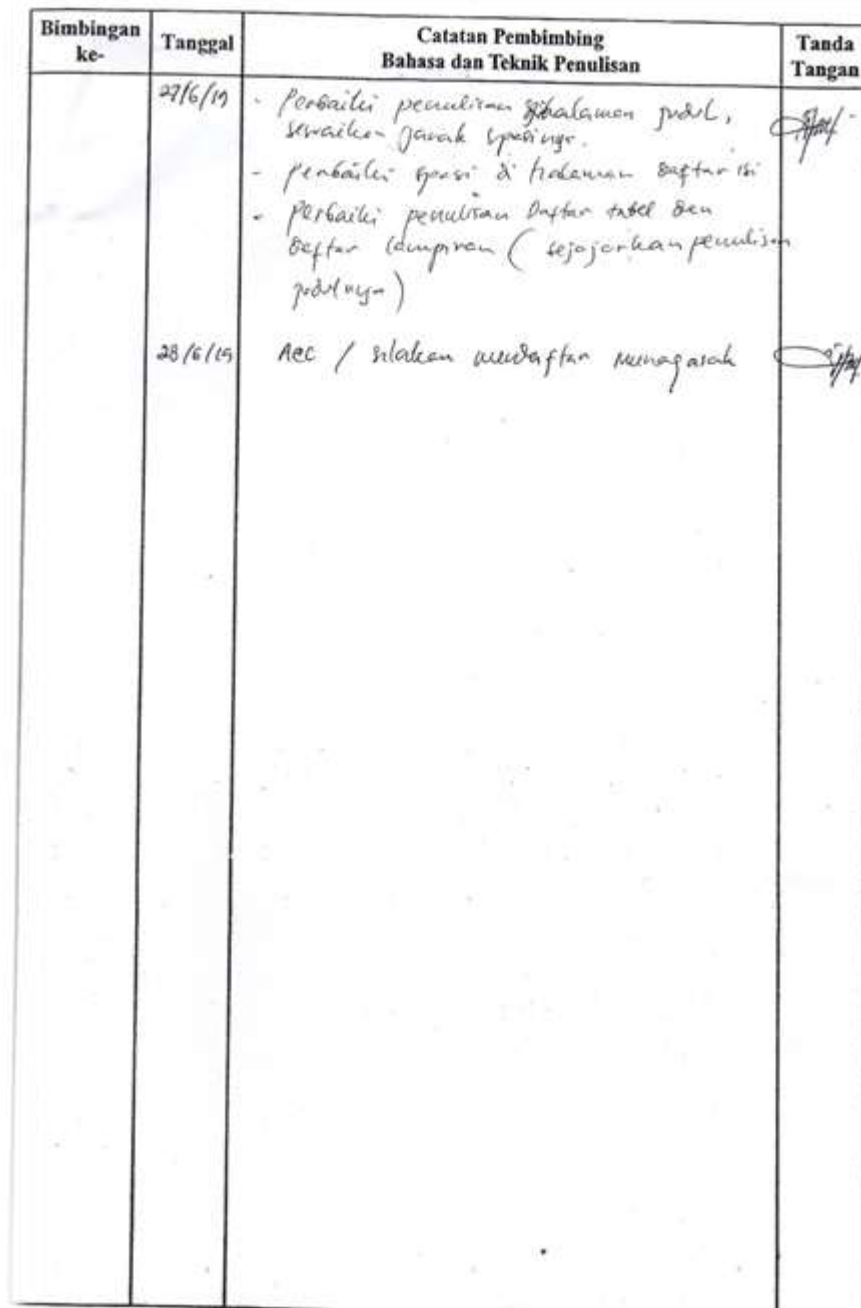 Bimbingan
ke-
Tanggal
Catatan Pembimbing
Bahasa dan Teknik Penulisan
Tanda
Tangan
27/6/19 - Perbaiki penulisan dihalaman judul,
sesuaikan jarak spasinya.
- perbaiki spasi di halaman Daftar isi
- Perbaiki penulisan Daftar tabel dan
Daftar lampiran ( sejajarkan penulisan
judulnya )
28/6/19 Acc / silakan mendaftar Munaqasah